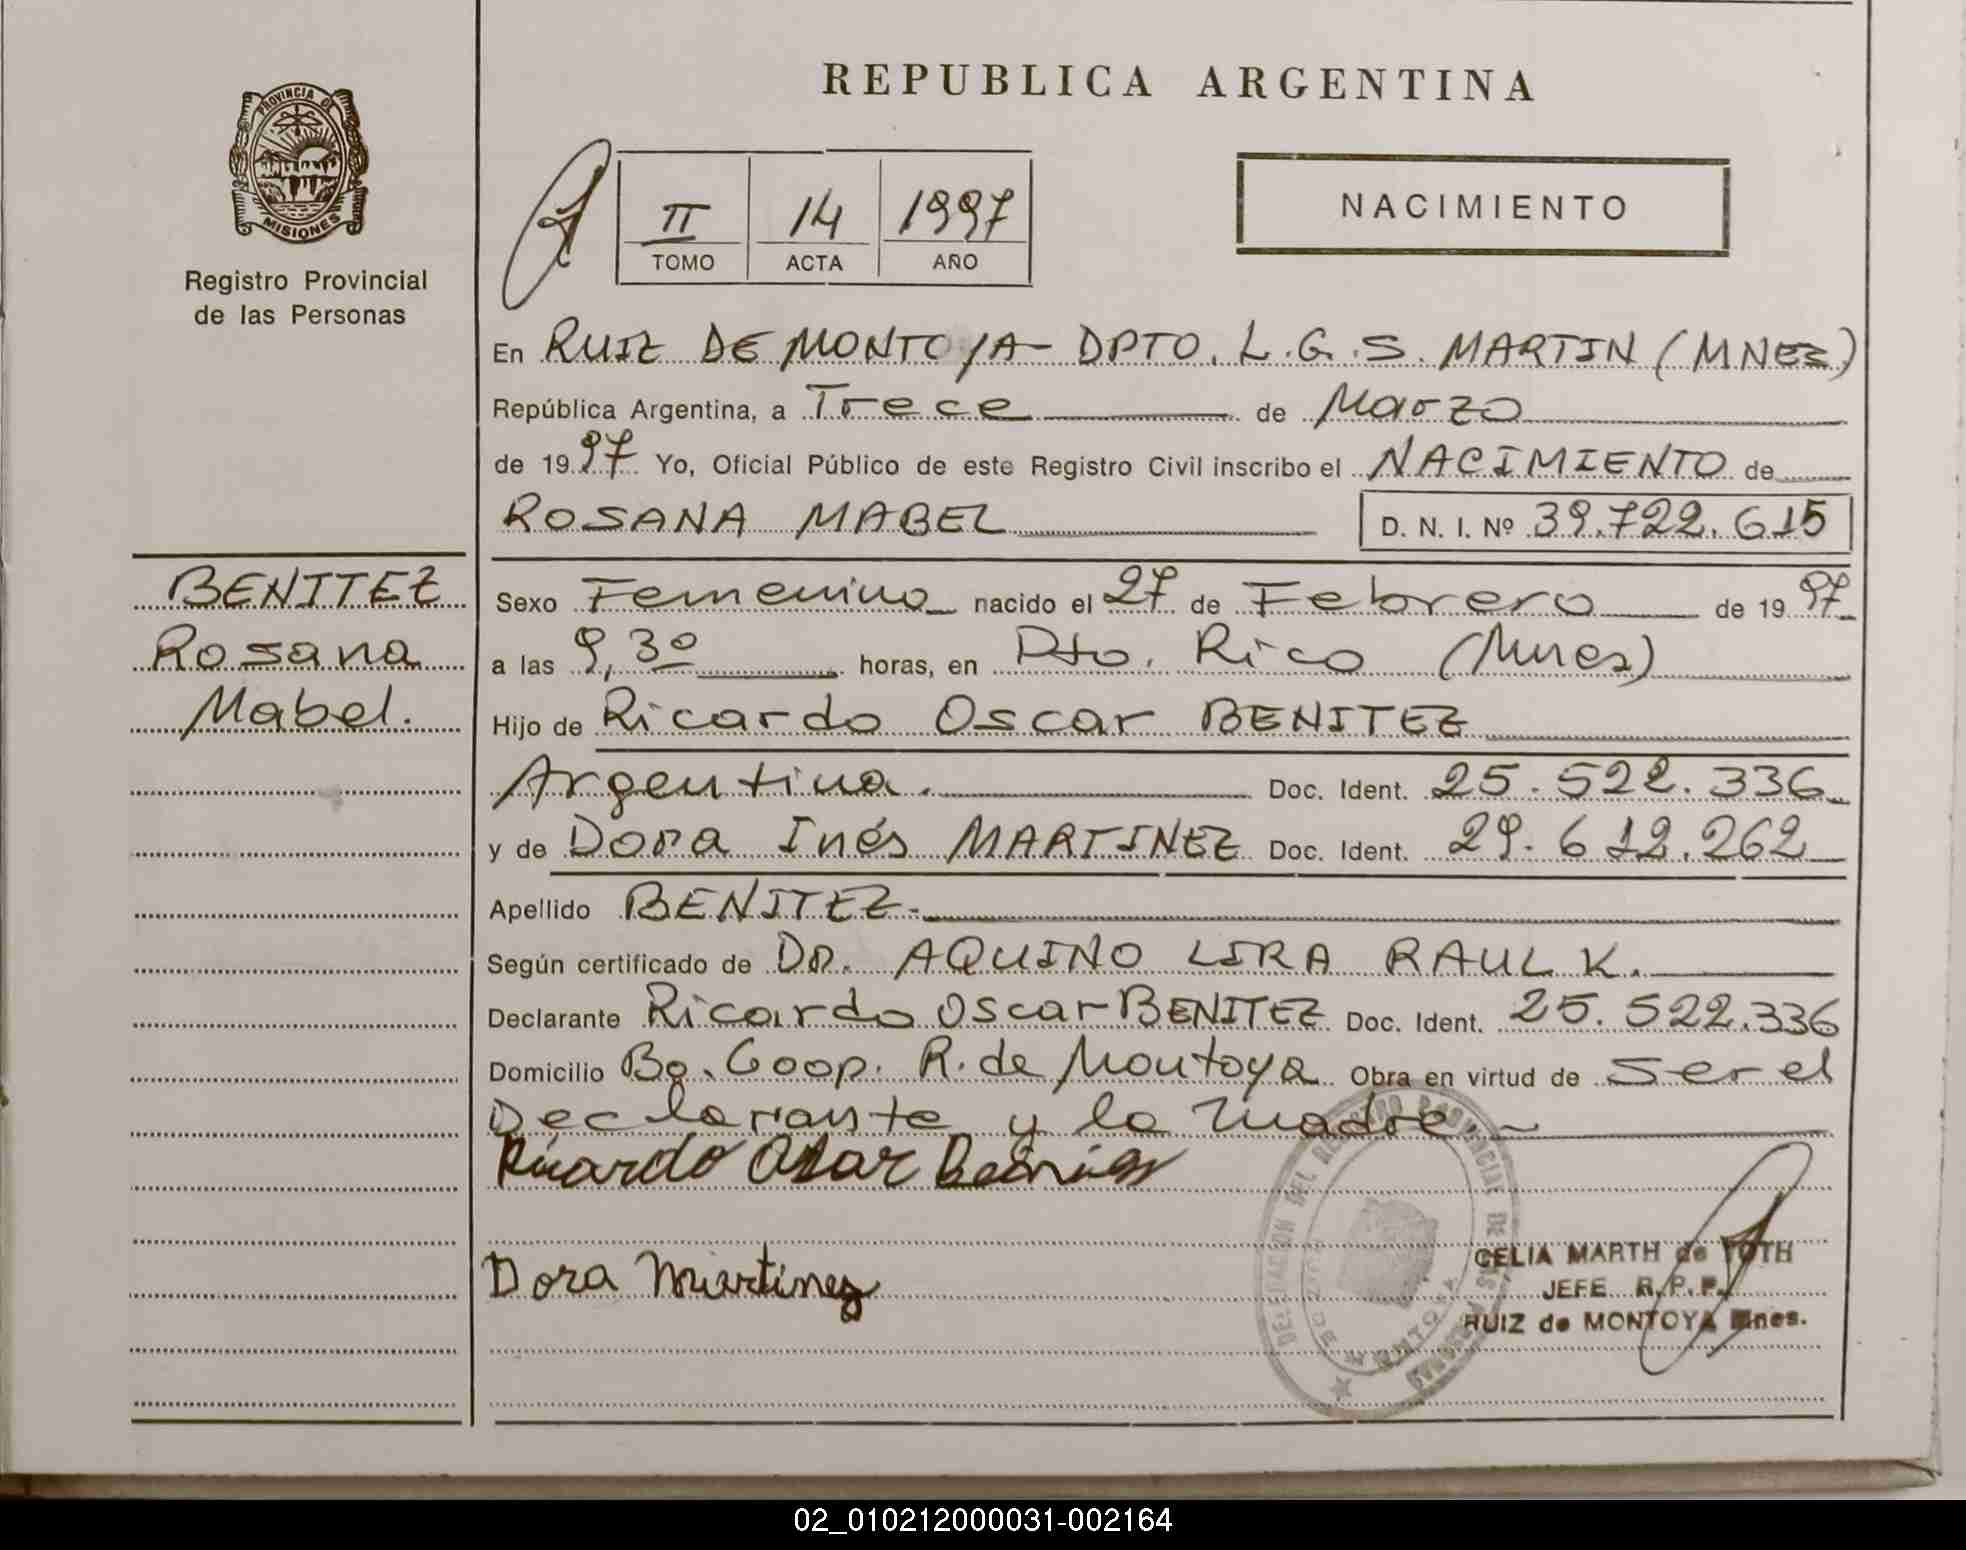 REPUBLICA ARGENTINA
PROVINCIA DE
MISIONES
Registro Provincial
de las Personas
II 14 1997
TOMO ACTA AÑO
NACIMIENTO
En RUIZ DE MONTOYA - DPTO. L.G.S. MARTIN (MNES)
República Argentina, a Trece de Marzo
de 1997 Yo, Oficial Público de este Registro Civil inscribo el NACIMIENTO de
ROSANA MABEL D. N. I. Nº 39.722.615
BENITEZ
Rosana
Mabel.
Sexo Femenino nacido el 27 de Febrero de 1997
a las 9,30 horas, en Pto. Rico (Mnes)
Hijo de Ricardo Oscar BENITEZ
Argentina. Doc. Ident. 25.522.336
y de Dora Inés MARTINEZ Doc. Ident. 29.612.262
Apellido BENITEZ.
Según certificado de DR. AQUINO LIRA RAUL K.
Declarante Ricardo Oscar BENITEZ Doc. Ident. 25.522.336
Domicilio Bo. Coop. R. de Montoya Obra en virtud de ser el
Declarante y la madre.
Ricardo Oscar Benitez
Dora Martinez
DELEGACION DEL REGISTRO PROVINCIAL DE LAS PERSONAS
MONTOYA
CELIA MARTH de TOTH
JEFE R.P.P.
RUIZ de MONTOYA Mnes.
02_010212000031-002164